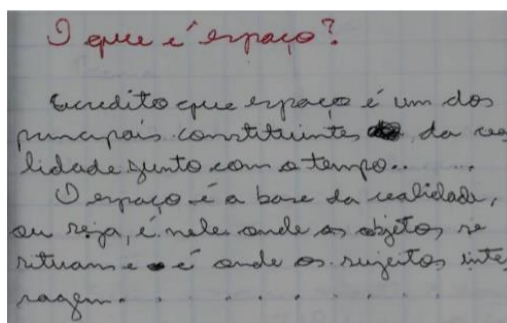 O que é espaço?
Acredito que espaço é um dos
principais constituintes da rea
lidade junto com o tempo..
O espaço é a base da realidade,
ou seja, é neles onde os objetos se
situam e é onde os sujeitos inte
ragem.